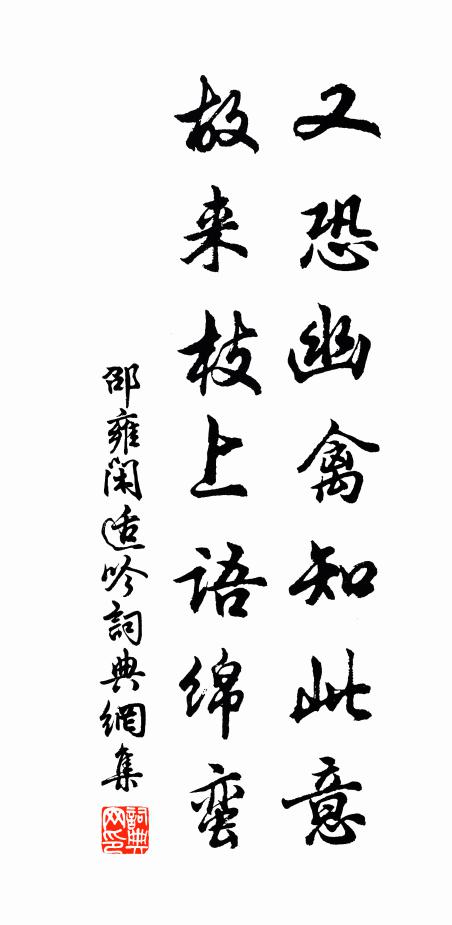 又恐幽禽知此意
故来枝上语绵蛮
邵雍闲适吟詞典網集
詞典网印